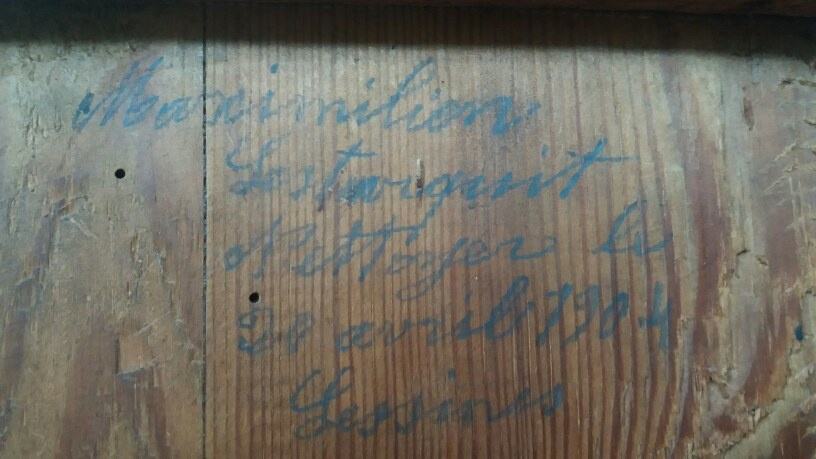 Maximilien
Lestarquit
Nettoyer le
20 avril 1904
Lessines